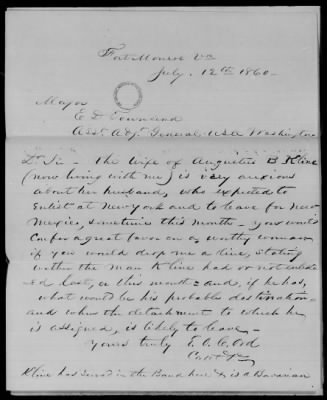 Fort Monroe Va
July. 12th 1860-
Major
E. D. Townsend
Asst. Adjt. General. U.S.A. Washington
Dr Sir - The wife of Augustus B. Kline
(now living with me) is very anxious
about her husband, who expected to
Enlist at New York and to leave for New
Mexico, sometime this month - you would
Confer a great favor on a worthy woman
if you would drop me a line, stating
wether the man Kline had or not enlist-
ed last, or this month and, if he has,
what would be his probable destination -
and when the detachment to which he
is assigned, is likely to leave -
Yours truly E. O. C. Ord
Kline has served in the Band here & is a Bavarian